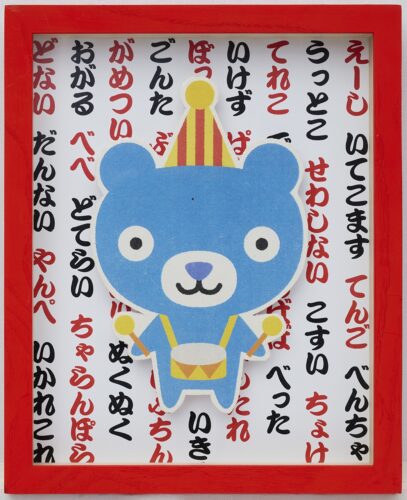 えーし いてこます てんご べんちゃ
うっとこ せわしない こすい ちょけ
てれこ べった
いけず たれ
ぼっ いき
ごんた
がめつい ぬくぬく
おがる べべ どてらい ちゃらんぽら
どない だんない やんぺ いかれこれ